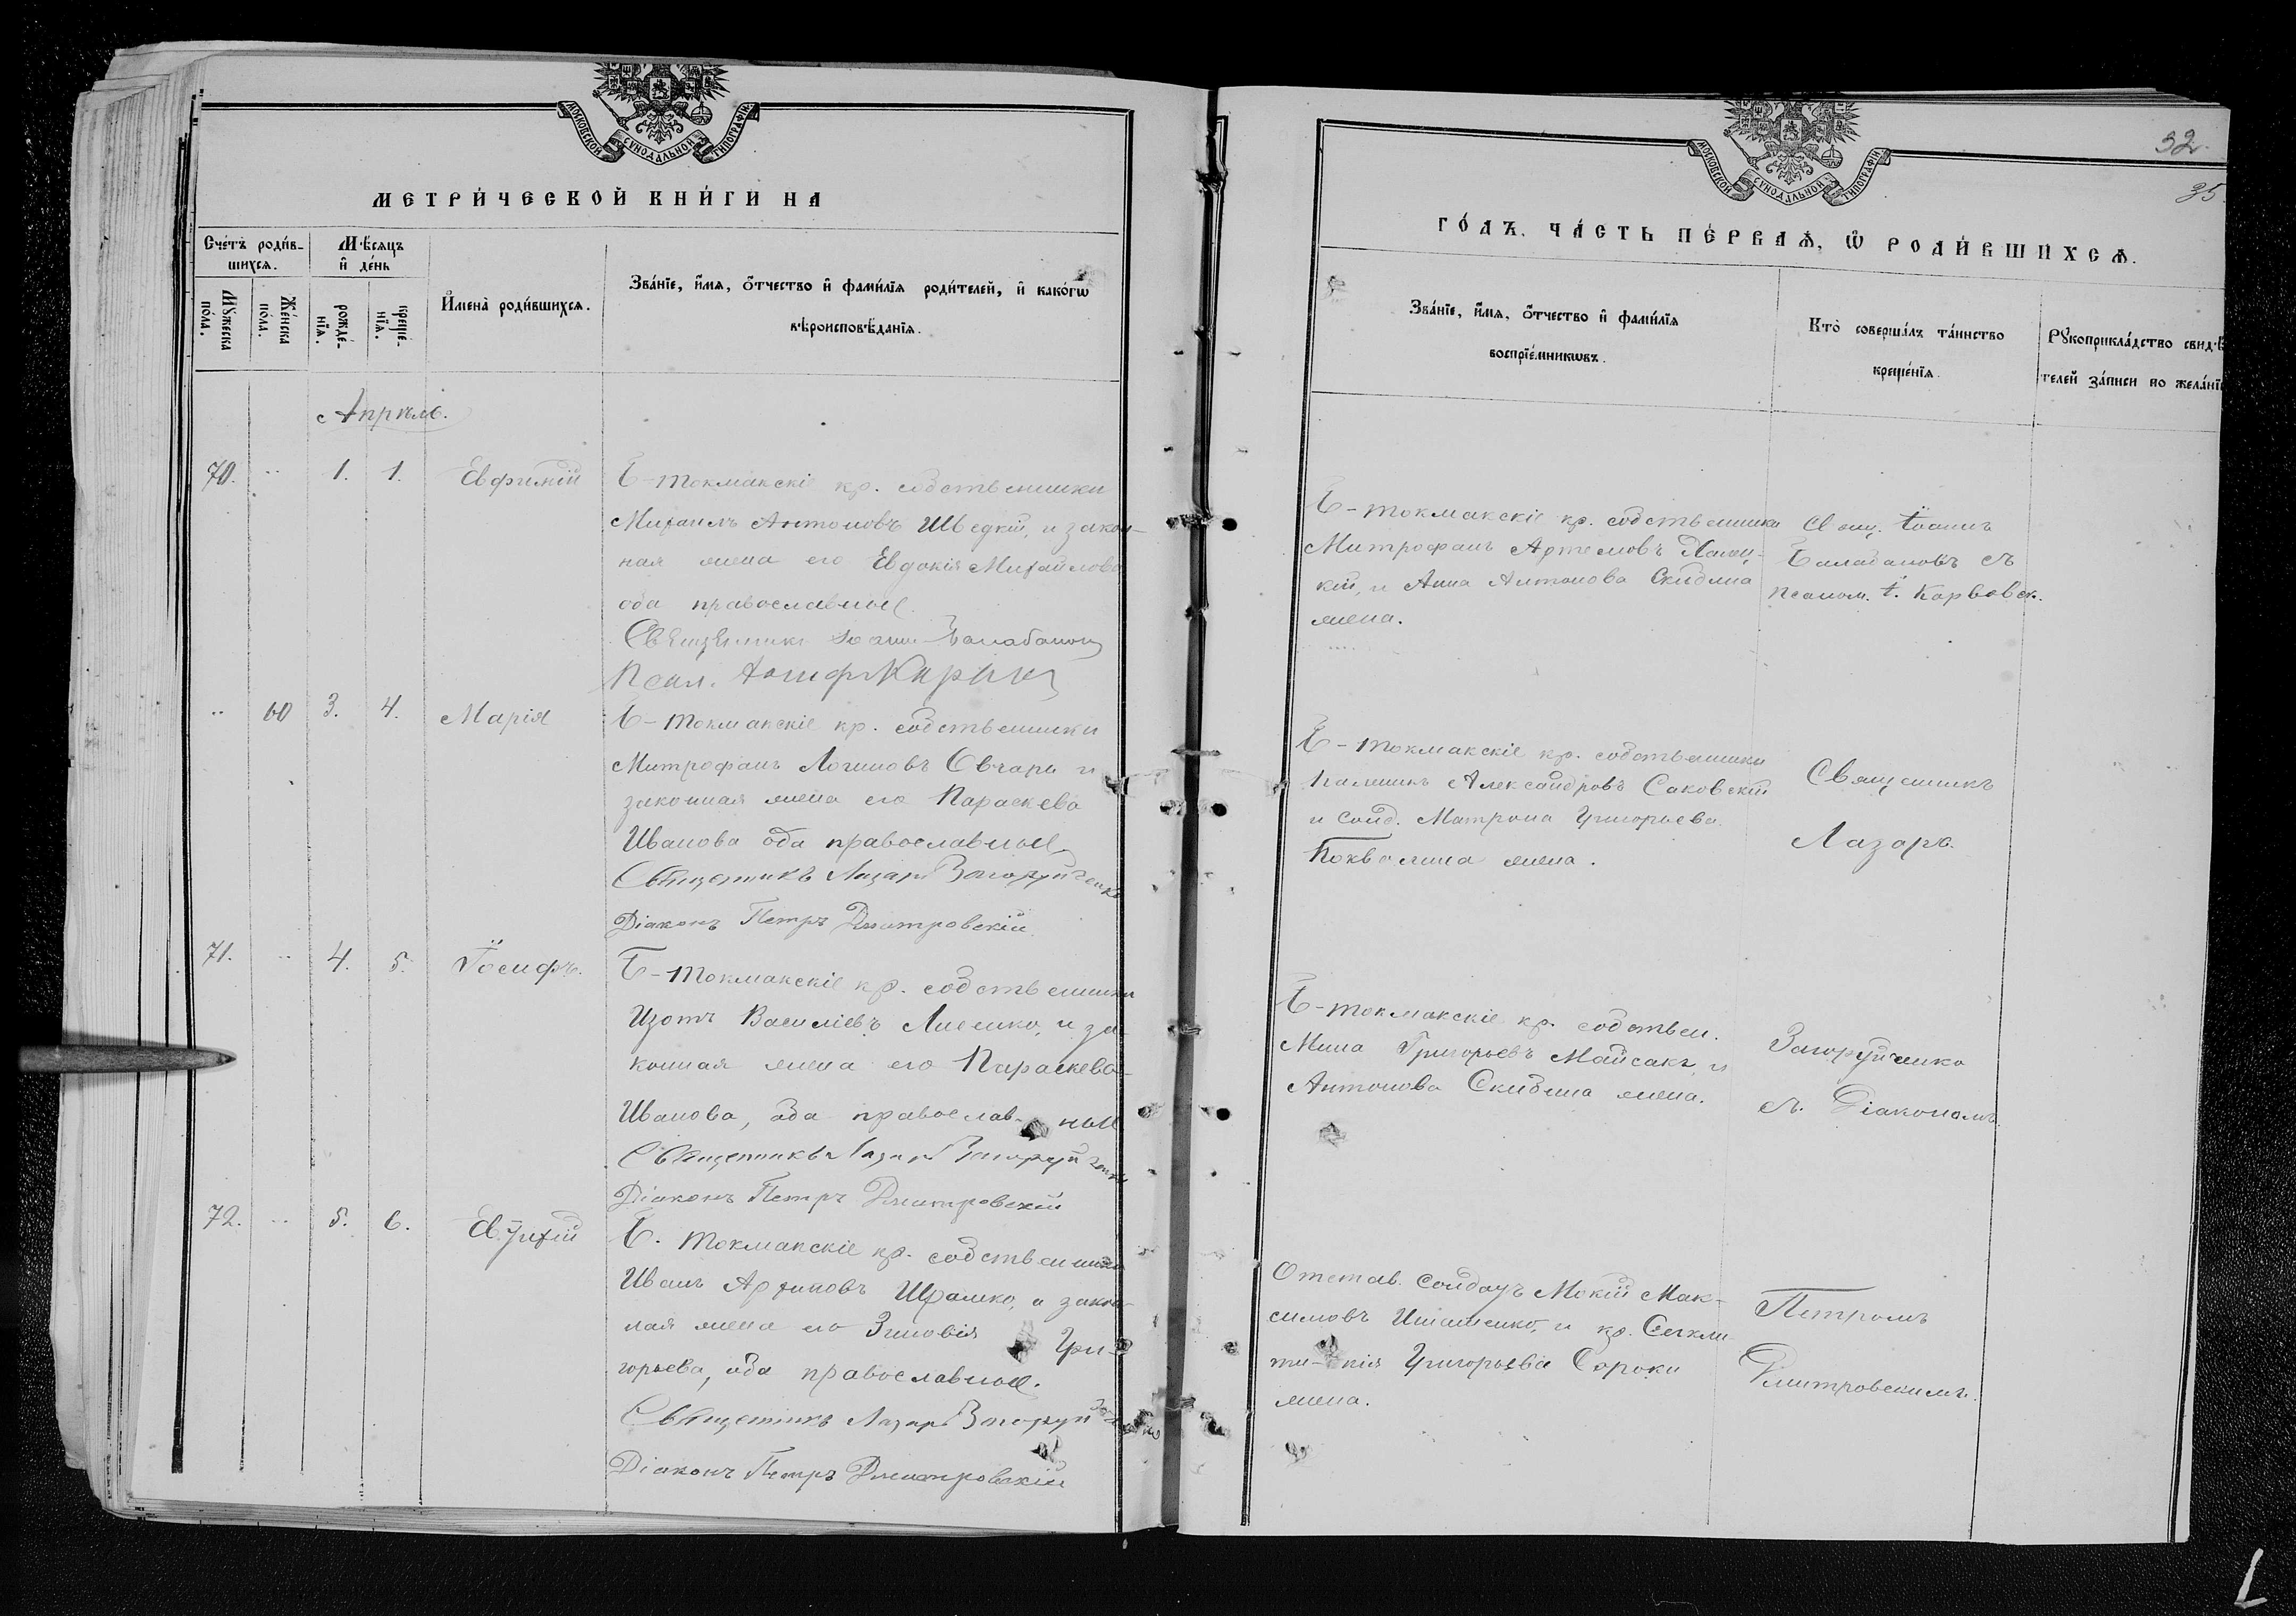 МОСКОВСКОЙ СѴНОДАЛЬНОЙ ТИПОГРАФІИ
МЕТРИ́ЧЕСКОЙ КНИ́ГИ НА
Сче́тъ роди́в-
шихсѧ.
Мѣ́сѧцъ
и҆ де́нь
Мꙋ́жеска
по́ла.
Же́нска
по́ла.
рожде́-
нїѧ.
креще́-
нїѧ.
И҆мена̀ роди́вшихсѧ.
Зва́нїе, и҆́мѧ, ѻ҆́тчество и҆ фами́лїѧ роди́телей, и҆ како́гѡ
вѣроисповѣ́данїѧ.
Апрѣль.
70. " 1. 1. Евфимій
Б-Токмакскіе кр. собственники
Михаилъ Антоновъ Шведкій, и закон-
ная жена его Евдокія Михайлова
оба православные.
Священникъ Іоаннъ Балабановъ
Псал.
" 60 3. 4. Марія
Б-Токмакскіе кр. собственники
Митрофанъ Логиновъ Овчаръ и
законная жена его Параскева
Иванова оба православные
Священникъ Лазарь Загоруйченко
Діаконъ Петръ Дмитровскій
71. " 4. 5. Іосифъ.
Б-Токмакскіе кр. собственники
Изотъ Василіевъ Лисенко, и за-
конная жена его Параскева
Иванова, оба православ- ные
Священникъ Лазарь Загоруйченко
Діаконъ Петръ Дмитровскій
72. " 5. 6. Евтихій
Б. Токмакскіе кр. собственники
Иванъ Архиповъ Шрамко, и закон-
ная жена его Зиновія Гри-
горьева, оба православные.
Священникъ Лазарь Загоруйченко
Діаконъ Петръ Дмитровскій
МОСКОВСКОЙ СѴНОДАЛЬНОЙ ТИПОГРАФІИ
32.
35.
ГО́ДЪ. ЧА́СТЬ ПЕ́РВАѦ, Ѽ РОДИ́ВШИХСѦ.
Зва́нїе, и҆́мѧ, ѻ҆́тчество и҆ фами́лїѧ
воспрїе́мникѡвъ.
Кто̀ соверша́лъ та́инство
креще́нїѧ.
Рꙋкоприкла́дство свидѣ́-
телей за́писи по жела́нїю
Б-Токмакскіе кр. собственники
Митрофанъ Артемовъ
кій, и Анна Антонова Скибина
жена.
Свящ. Іоаннъ
Балабановъ съ
псалом. І. Карвовск.
Б-Токмакскіе кр. собственники
Александровъ Саковскій
и солд. Матрона Григорьева
жена.
Священникъ
Лазарь
Б-Токмакскіе кр. собствен.
Мина Григорьевъ Майсакъ, и
Антонова Скибина жена.
Загоруйченко
съ Діакономъ
Отстав. солдатъ Мокій Мак-
симовъ Игнатенко, и кр. Секли
ти- кія Григорьева Сороки
жена.
Петромъ
Дмитровскимъ.